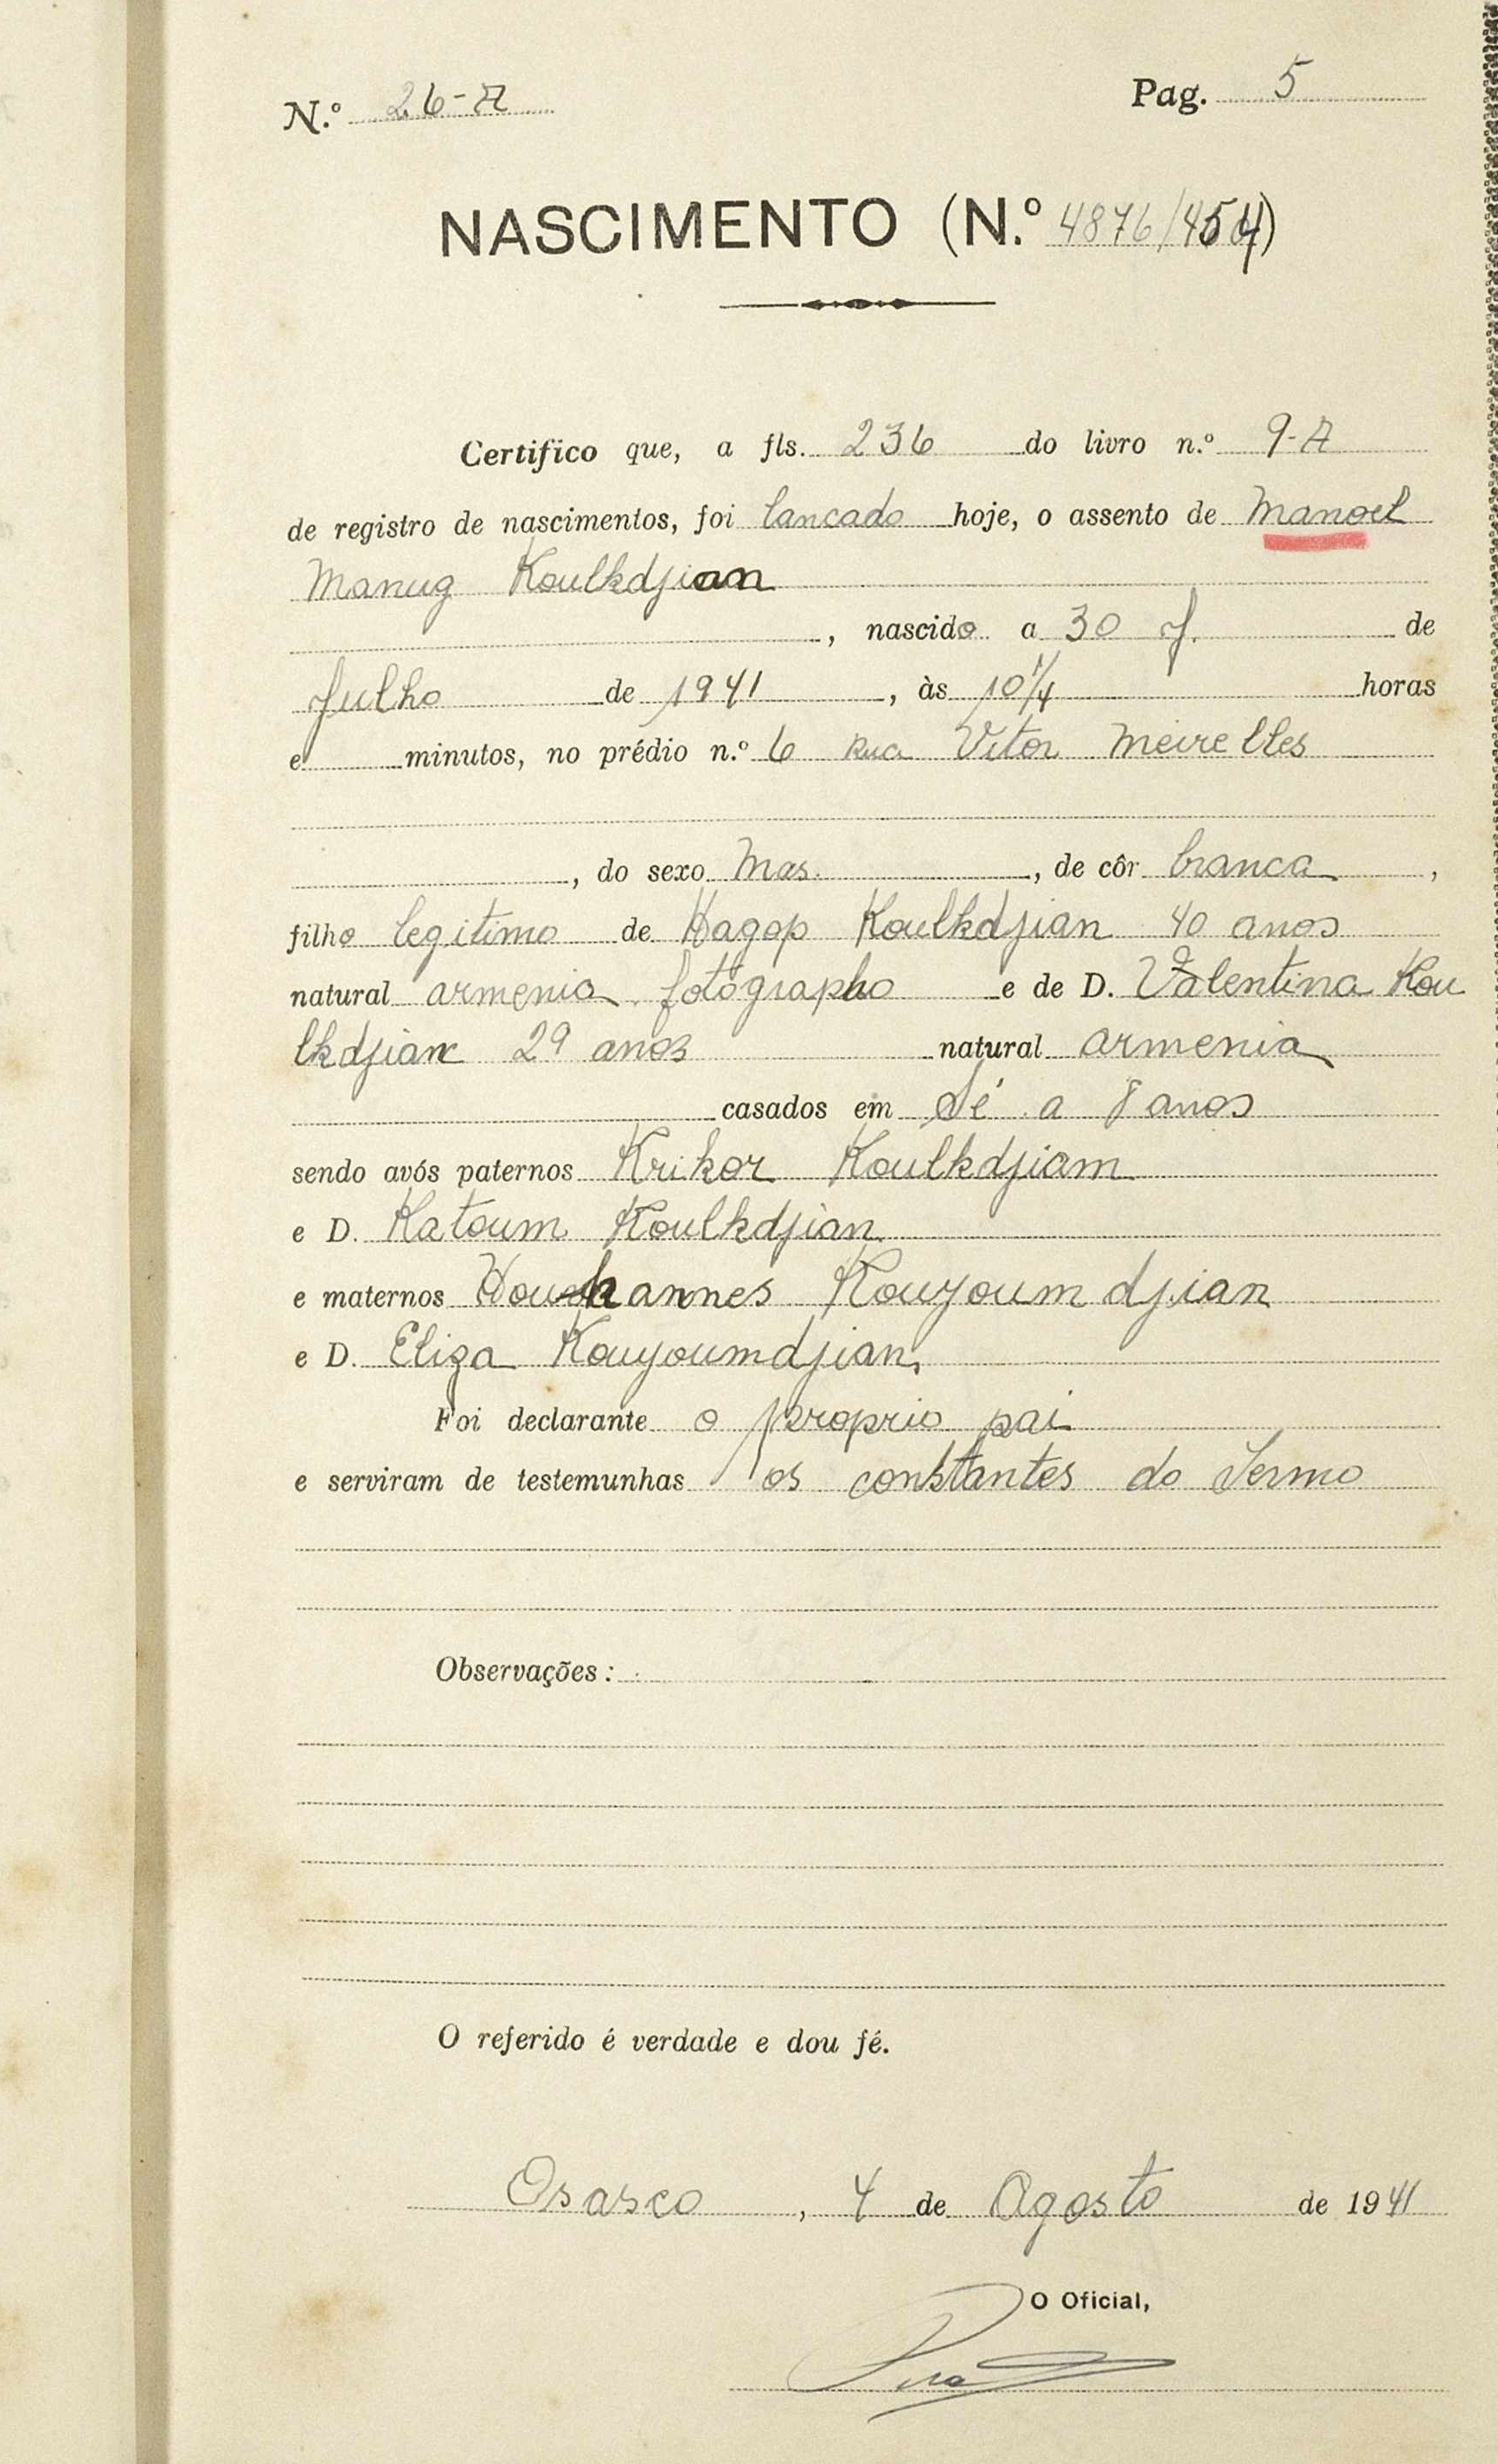 N.º 26-A Pag. 5
NASCIMENTO (N.º 4876/454)
Certifico que, a fls. 236 do livro n.º 9-A
de registro de nascimentos, foi lancado hoje, o assento de Manoel
Manug Koulkdjian
, nascido a 30 f. de
Julho de 1941, às 10 1/4 horas
e minutos, no prédio n.º 6 Rua Vitor Meirelles
, do sexo Mas. , de côr branca ,
filho legitimo de Hagop Koulkdjian 40 anos
natural armenia fotógrapho e de D. Valentina Kou
lkdjian 29 anos natural armenia
casados em Sé a 8 anos
sendo avós paternos Krikor Koulkdjiam
e D. Katoum Koulkdjian
e maternos Houhannes Kouyoumdjian
e D. Eliza Kouyoumdjian,
Foi declarante o proprio pai
e serviram de testemunhas os constantes do Termo
Observações :
O referido é verdade e dou fé.
Osasco , 4 de Agosto de 1941
O Oficial,